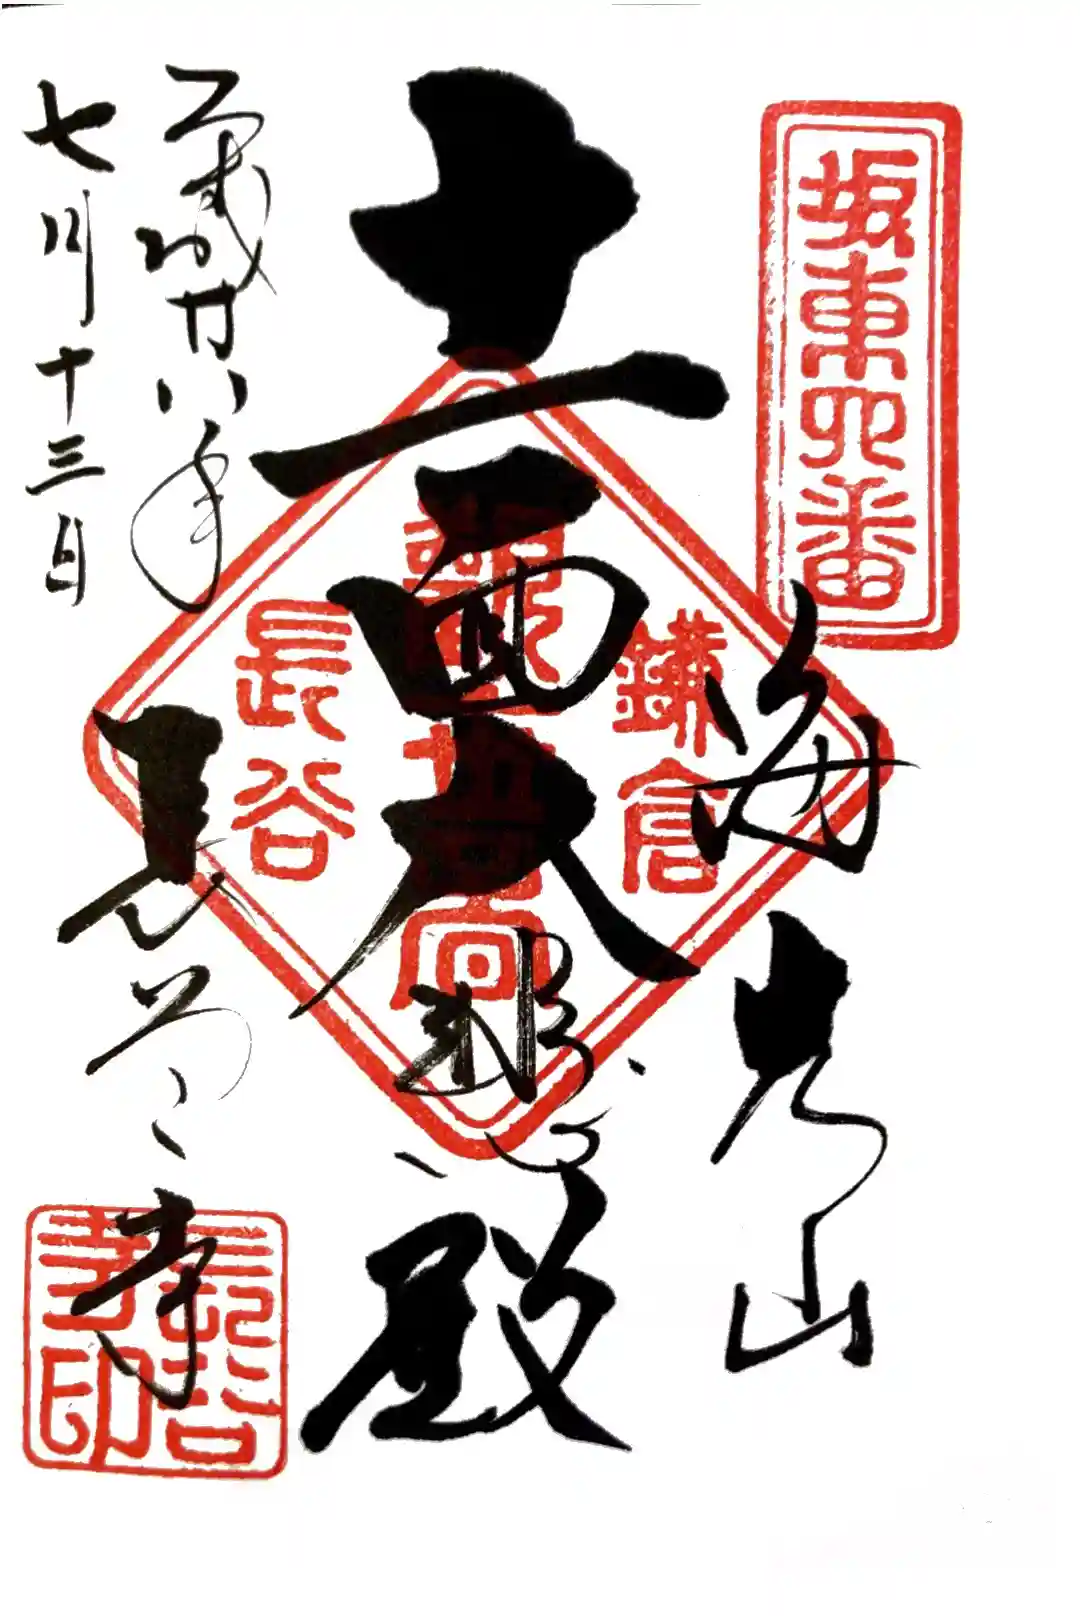 坂東四番
海光山
鎌倉
十一面大悲殿
観世音
長谷
長谷寺
長谷寺印
平成廿八年
七月十三日